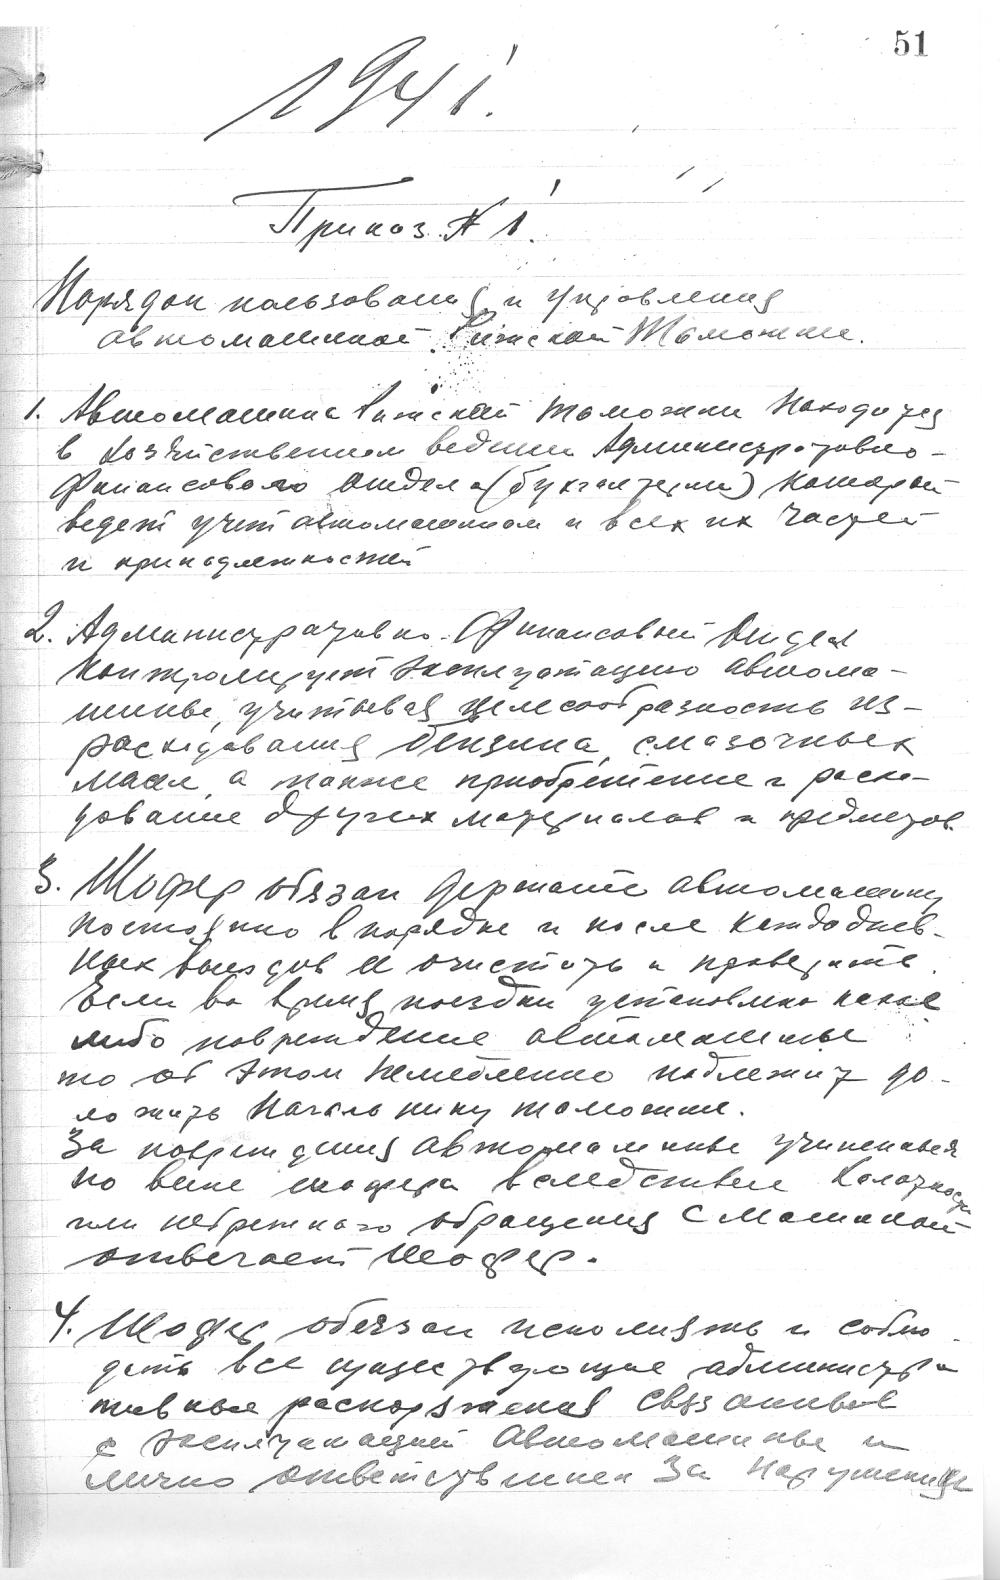 51
1941.
Приказ № 1.
Порядок пользования и управления
автомашиной Рижской Таможни.
1. Автомашина Рижской таможни находится
в хозяйственном ведении Административно-
Финансового отдела (бухгалтерии) который
ведет учет автомашинам и всех их частей
и принадлежностей
2. Административно-Финансовый Отдел
контролирует эксплуатацию автома-
шины, учитывая целесообразность из-
расходования бензина, смазочных
масел, а также приобретение и расхо-
дование других материалов и предметов.
3. Шофер обязан держать автомашину
постоянно в порядке и после каждоднев-
ных выездов её очистить и проверить.
Если во время поездки установлено какое
либо повреждение автомашины
то об этом немедленно подлежит до-
ложить Начальнику таможни.
За повреждения автомашины учиненные
по вине шофера вследствие халатности
или небрежного обращения с машиной
отвечает шофер.
4. Шофер обязан исполнять и соблю-
дать все существующие администра
тивные распоряжения связанные
с эксплуатацией автомашины и
лично ответственен за нарушения